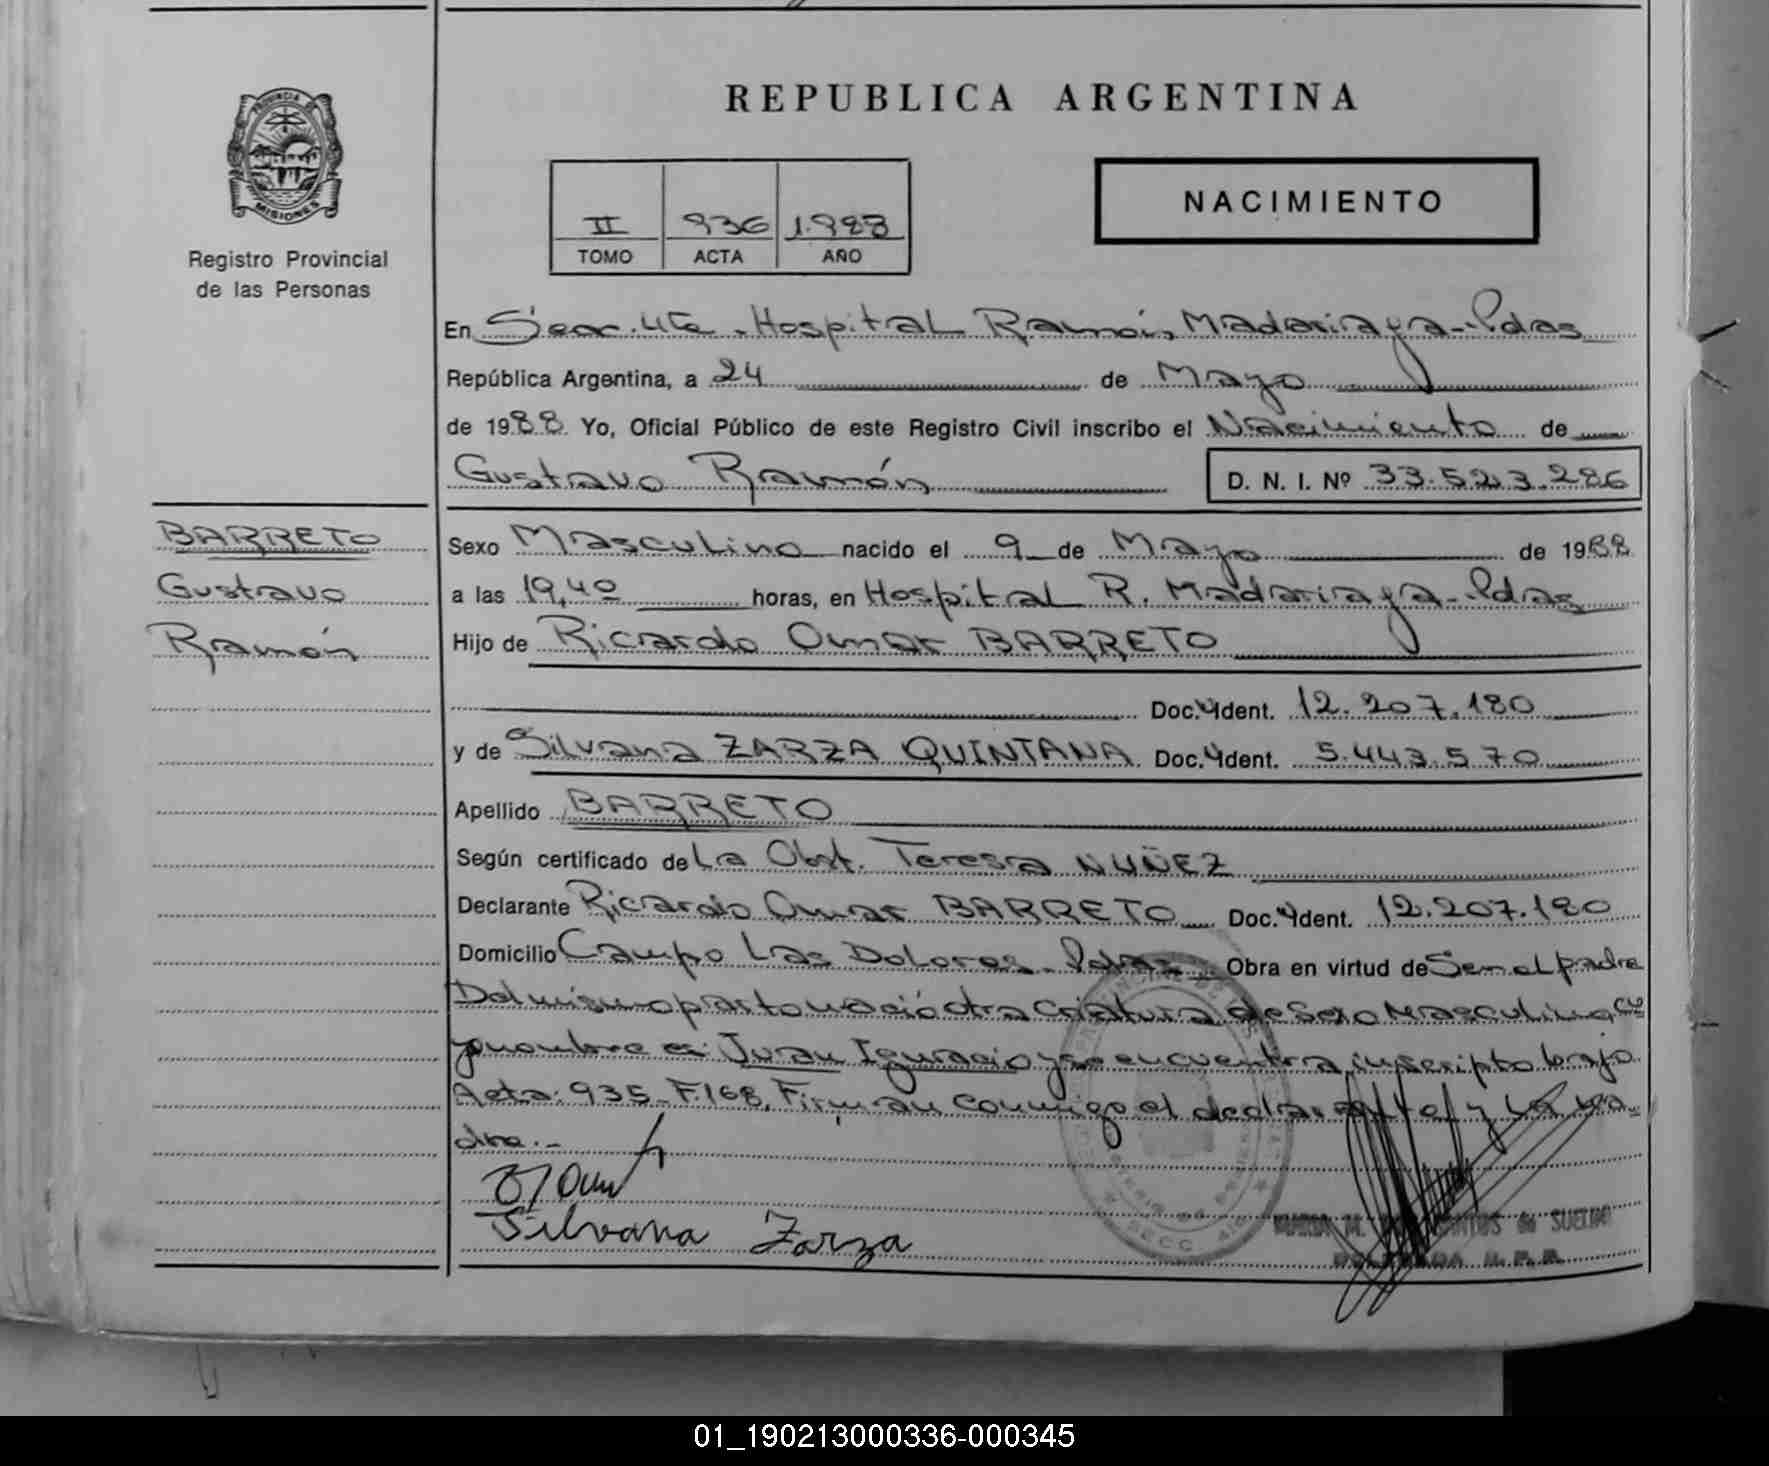 REPUBLICA ARGENTINA
PROVINCIA DE
MISIONES
Registro Provincial
de las Personas
NACIMIENTO
II 936 1.988
TOMO ACTA AÑO
En Secc. 4ta. Hospital Ramón Madariaga - Pdas
República Argentina, a 24 de Mayo
de 1988 Yo, Oficial Público de este Registro Civil inscribo el Nacimiento de
Gustavo Ramón D. N. I. Nº 33.523.286
BARRETO
Gustavo
Ramón
Sexo Masculino nacido el 9 de Mayo de 1988
a las 19,40 horas, en Hospital R. Madariaga - Pdas
Hijo de Ricardo Omar BARRETO
Doc. Ident. 12.207.180
y de Silvana ZARZA QUINTANA Doc. Ident. 5.443.570
Apellido BARRETO
Según certificado de La Obst. Teresa NUÑEZ
Declarante Ricardo Omar BARRETO Doc. Ident. 12.207.180
Domicilio Campo Las Dolores - Pdas Obra en virtud de Ser el padre
Del mismo parto nació otra Criatura de Sexo Masculino cu
yo nombre es: Juan Ignacio y se encuentra inscripto bajo
Acta: 935 - F. 168. Firman conmigo el declarante y La Ma-
dre.-
Silvana Zarza
01_190213000336-000345